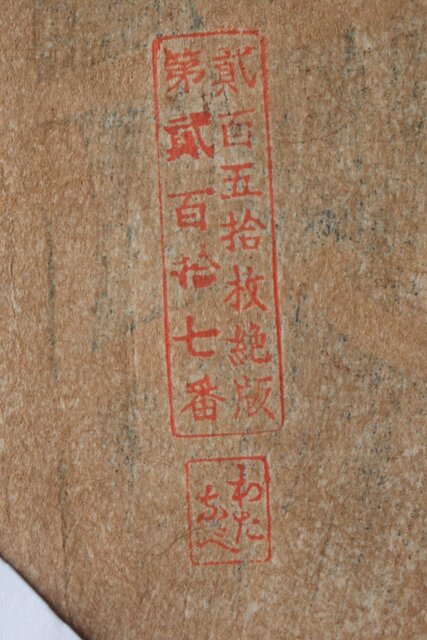 貳百五拾枚絶版
第貳百拾七番
わた
なべ